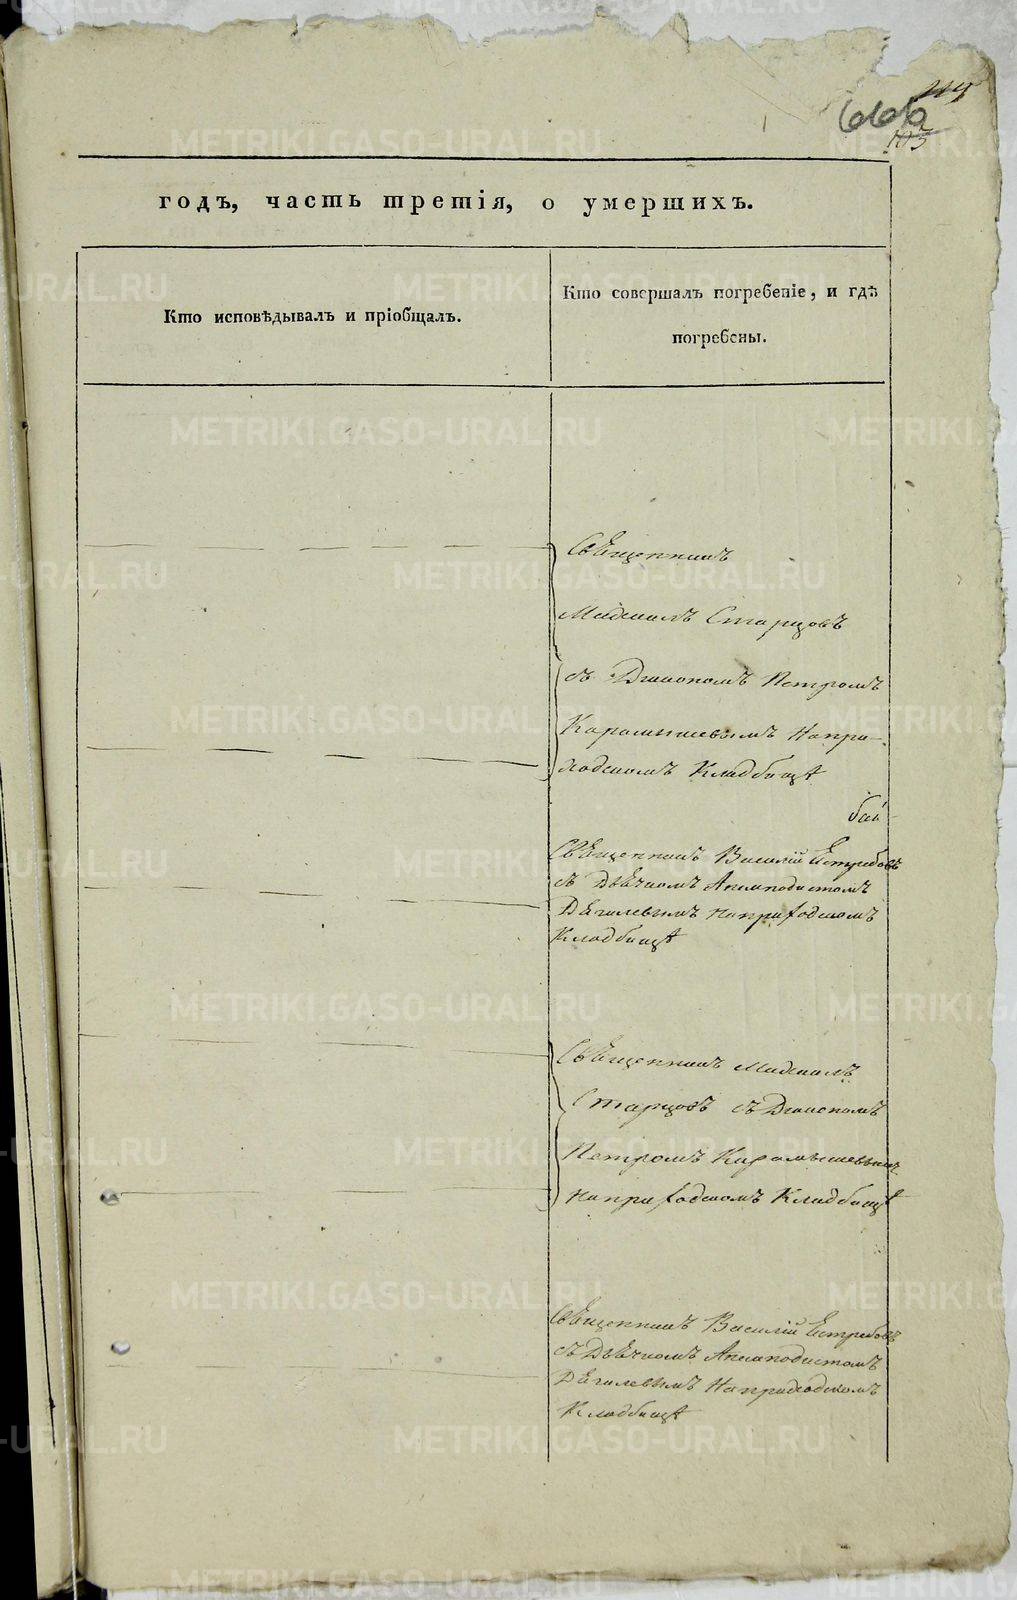 666
годъ, часть третія, о умершихъ.
Кто исповѣдывалъ и пріобщалъ.
Кто совершалъ погребеніе, и гдѣ
погребены.
Священникъ
Старцовъ
съ Діакономъ Петромъ
Карамышевымъ На при-
ходскомъ Кладбищѣ
Священникъ Василій Ястребовъ
съ Дьячкомъ Анемподистомъ
Дягилевымъ на приходскомъ
Кладбищѣ
Священникъ
Старцовъ съ Діакономъ
Петромъ Карамышевымъ
на приходскомъ Кладбищѣ
Священникъ Василій Ястребовъ
съ Дьячкомъ Анемподистомъ
Дягилевымъ На приходскомъ
Кладбищѣ
METRIKI.GASO-URAL.RU